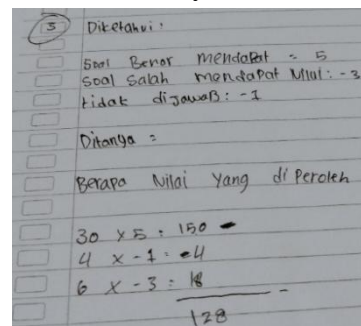 3 Diketahui :
Soal Benar mendapat = 5
Soal Salah mendapat Nilai : -3
tidak dijawab : -1
Ditanya =
Berapa Nilai Yang diPeroleh
30 x 5 : 150 -
4 x -1 = -4
6 x -3 : 18
128